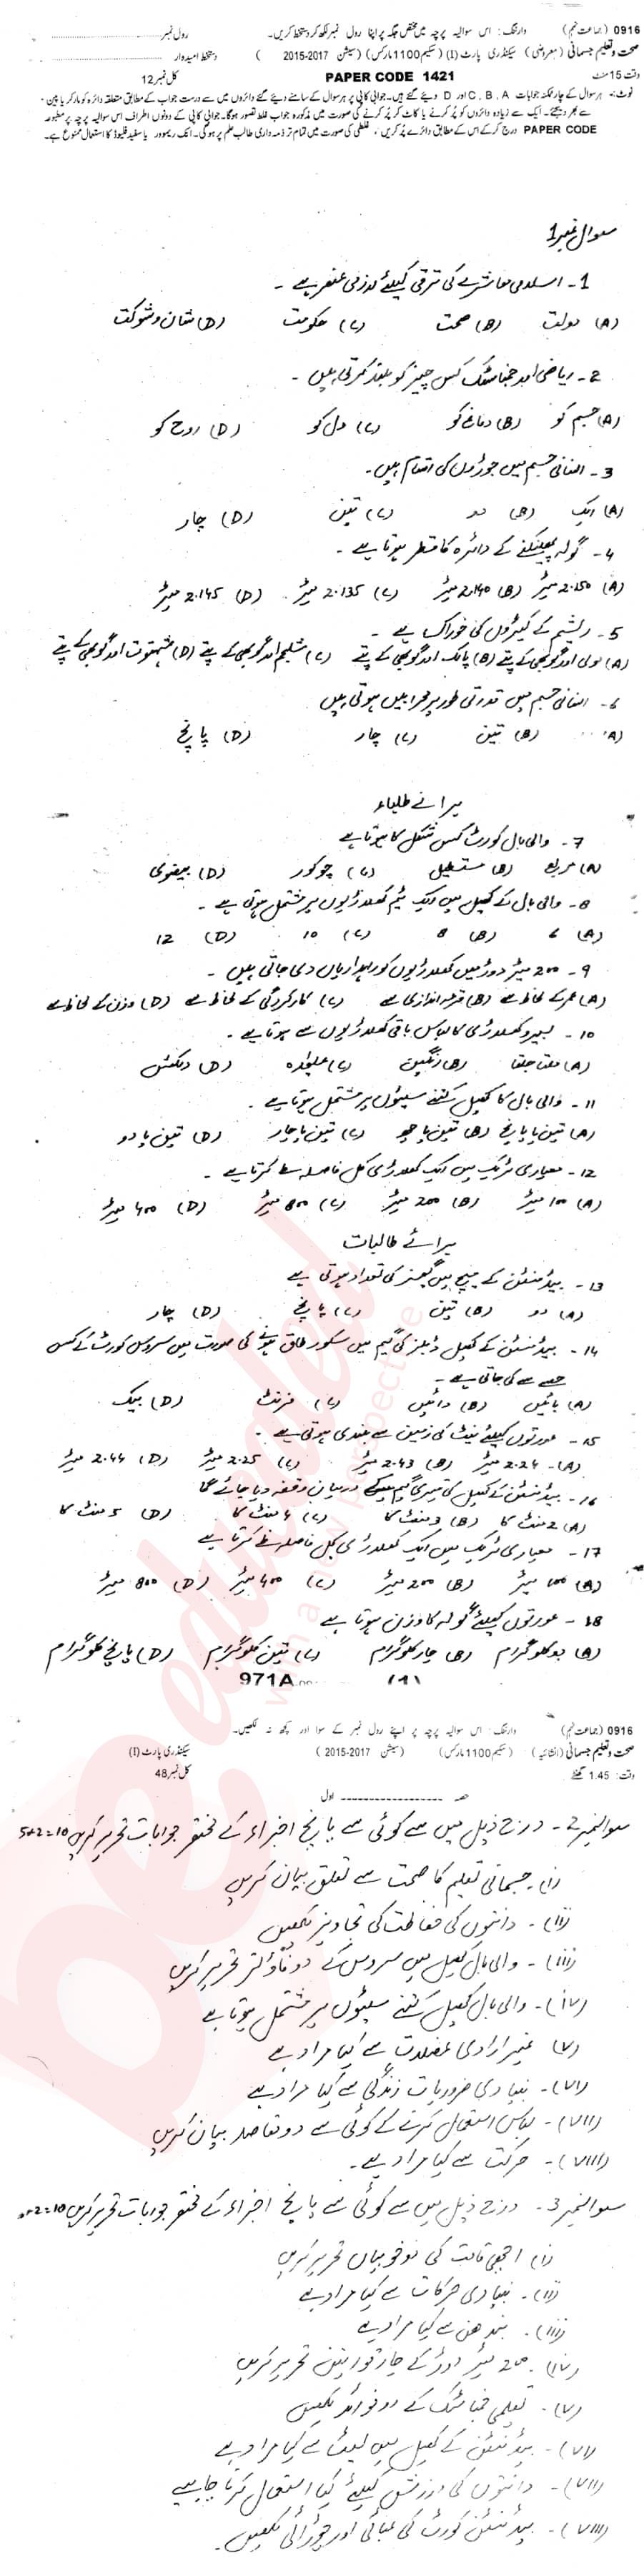 0916 (جماعت نہم) وارننگ: اس سوالیہ پرچہ میں مختص جگہ پر اپنا رول نمبر لکھ کر دستخط کریں۔ رول نمبر
صحت و تعلیم جسمانی (معروضی) سیکنڈری پارٹ (I) (سکیم 1100 مارکس) (سیشن 2015-2017) دستخط امیدوار
وقت 15 منٹ PAPER CODE 1421 کل نمبر 12
نوٹ:- ہر سوال کے چار ممکنہ جوابات C, B, A اور D دیئے گئے ہیں۔ جوابی کاپی پر ہر سوال کے سامنے دیئے گئے دائروں میں سے درست جواب کے مطابق متعلقہ دائرہ کو مارکر یا پین
سے بھر دیجئے۔ ایک سے زیادہ دائروں کو پُر کرنے یا کاٹ کر پُر کرنے کی صورت میں مذکورہ جواب غلط تصور ہوگا۔ جوابی کاپی کے دونوں اطراف اس سوالیہ پرچہ پر مطبوعہ
PAPER CODE درج کر کے اس کے مطابق دائرے پُر کریں، غلطی کی صورت میں تمام تر ذمہ داری طالب علم پر ہوگی۔ انک ریموور یا سفید فلیوڈ کا استعمال ممنوع ہے۔
سوال نمبر 1
1- اسلامی معاشرے کی ترقی کیلئے لازمی عنصر ہے۔
(A) دولت (B) صحت (C) حکومت (D) شان و شوکت
2- ریاضی اور جمناسٹک کس چیز کو بلند کرتی ہیں۔
(A) جسم کو (B) دماغ کو (C) دل کو (D) روح کو
3- انسانی جسم میں جوڑوں کی اقسام ہیں۔
(A) ایک (B) دو (C) تین (D) چار
4- گولہ پھینکنے کے دائرہ کا قطر ہوتا ہے۔
(A) 2.150 میٹر (B) 2.140 میٹر (C) 2.135 میٹر (D) 2.145 میٹر
5- ریشم کے کیڑوں کی خوراک ہے۔
(A) مولی اور گوبھی کے پتے (B) پالک اور گوبھی کے پتے (C) شلجم اور گوبھی کے پتے (D) شہتوت اور گوبھی کے پتے
6- انسانی جسم میں قدرتی طور پر محرابیں ہوتی ہیں
(A) (B) تین (C) چار (D) پانچ
برائے طلباء
7- والی بال کورٹ کس شکل کا ہوتا ہے
(A) مربع (B) مستطیل (C) چوکور (D) بیضوی
8- والی بال کے کھیل میں ایک ٹیم کھلاڑیوں پر مشتمل ہوتی ہے۔
(A) 6 (B) 8 (C) 10 (D) 12
9- 200 میٹر دوڑ میں کھلاڑیوں کو راہداریاں دی جاتی ہیں۔
(A) عمر کے لحاظ سے (B) قرعہ اندازی سے (C) کارکردگی کے لحاظ سے (D) وزن کے لحاظ سے
10- لبیرو کھلاڑی کا لباس باقی کھلاڑیوں سے ہوتا ہے۔
(A) ملتا جلتا (B) رنگین (C) علیحدہ (D) دلکش
11- والی بال کا کھیل کتنے سیٹوں پر مشتمل ہوتا ہے۔
(A) تین یا پانچ (B) تین یا چھ (C) تین یا چار (D) تین یا دو
12- معیاری ٹریک میں ایک کھلاڑی کل فاصلہ طے کرتا ہے۔
(A) 100 میٹر (B) 200 میٹر (C) 800 میٹر (D) 400 میٹر
برائے طالبات
13- بیڈمنٹن کے میچ میں گیمز کی تعداد ہوتی ہے
(A) دو (B) تین (C) پانچ (D) چار
14- بیڈمنٹن کے کھیل ڈبلز کی گیم میں سکور طاق ہونے کی صورت میں سروس کورٹ کے کس
حصے سے کی جاتی ہے۔
(A) بائیں (B) دائیں (C) فرنٹ (D) بیک
15- عورتوں کیلئے نیٹ کی زمین سے بلندی ہوتی ہے۔
(A) 2.24 میٹر (B) 2.43 میٹر (C) 2.25 میٹر (D) 2.44 میٹر
16- بیڈمنٹن کے کھیل کی تیسری گیم کے درمیان وقفہ دیا جائے گا
(A) 2 منٹ کا (B) 3 منٹ کا (C) 4 منٹ کا (D) 5 منٹ کا
17- معیاری ٹریک میں ایک کھلاڑی کل فاصلہ طے کرتا ہے
(A) 100 میٹر (B) 200 میٹر (C) 400 میٹر (D) 800 میٹر
18- عورتوں کیلئے گولہ کا وزن ہوتا ہے
(A) دو کلوگرام (B) چار کلوگرام (C) تین کلوگرام (D) پانچ کلوگرام
971A (1)
0916 (جماعت نہم) وارننگ: اس سوالیہ پرچہ پر اپنے رول نمبر کے سوا اور کچھ نہ لکھیں۔
صحت و تعلیم جسمانی (انشائیہ) (سکیم 1100 مارکس) (سیشن 2015-2017) سیکنڈری پارٹ (I)
وقت: 1.45 گھنٹے کل نمبر 48
حصہ اول
سوال نمبر 2- درج ذیل میں سے کوئی سے پانچ اجزاء کے مختصر جوابات تحریر کریں 5x2=10
(i)- جسمانی تعلیم کا صحت سے تعلق بیان کریں
(ii)- دانتوں کی حفاظت کی تجاویز لکھیں
(iii)- والی بال کھیل میں سروس کے دو فاؤلز تحریر کریں
(iv)- والی بال کھیل کتنے سیٹوں پر مشتمل ہوتا ہے
(v) غیر ارادی عضلات سے کیا مراد ہے
(vi)- بنیادی ضروریات زندگی سے کیا مراد ہے
(vii)- لباس استعمال کرنے کے کوئی سے دو مقاصد بیان کریں
(viii)- حرکت سے کیا مراد ہے۔
سوال نمبر 3- درج ذیل میں سے کوئی سے پانچ اجزاء کے مختصر جوابات تحریر کریں 5x2=10
(i) اچھی قامت کی دو خوبیاں تحریر کریں
(ii)- بنیادی حرکات سے کیا مراد ہے
(iii)- بندھن سے کیا مراد ہے
(iv)- 200 میٹر دوڑ کے چار قوانین تحریر کریں
(v)- تعلیمی جمناسٹک کے دو فوائد لکھیں
(vi)- بیڈمنٹن کے کھیل میں لیٹ سے کیا مراد ہے
(vii)- دانتوں کی ورزش کیلئے کیا استعمال کرنا چاہیے
(viii)- بیڈمنٹن کورٹ کی لمبائی اور چوڑائی لکھیں۔